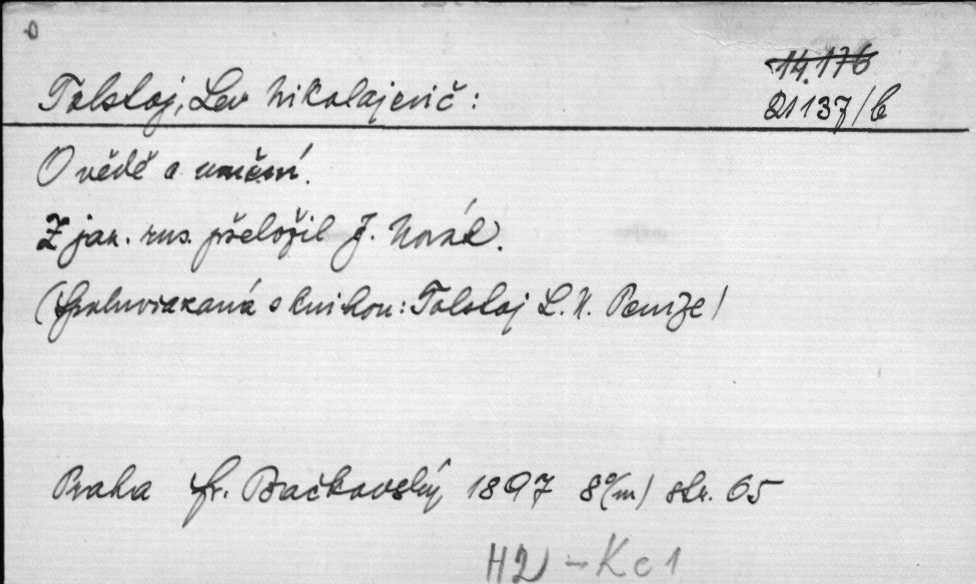 14.176
Tolstoj, Lev Nikolajevič:
21137/b
O vědě a umění.
Z jaz. rus. přeložil J. Novák.
(Spoluviazaná s knihou: Tolstoj L. N. Peníze)
Praha Fr. Bačkovský 1897 8°(m) str. 65
H2 - Kc1